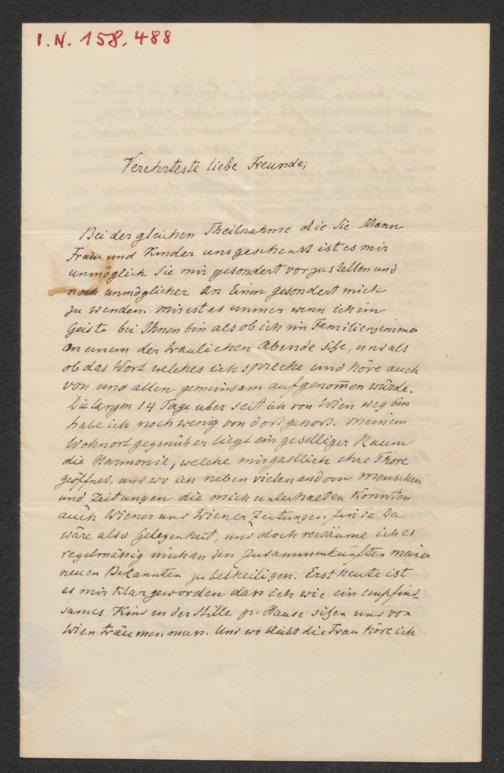 I.N. 158.488
Verehrteste liebe Freunde;
Bei der gleichen Theilnahme die Sie Mann
Frau und Kinder uns geschenkt ist es mir
unmöglich Sie mir gesondert vorzustellen und
noch unmöglicher an Einen gesondert mich
zu wenden. Mir ist es immer wenn ich im
Geiste bei Ihnen bin als ob ich im Familienzimmer
an einem der traulichen Abende sitze, und als
ob das Wort welches ich spreche und höre auch
von uns allen gemeinsam aufgenommen würde.
Die langen 14 Tage über seit ich von Wien weg bin
habe ich noch wenig von dort gehört. Meinem
Wohnort gegenüber liegt ein geselliger Raum
die Harmonie, welche mir gastlich ihre Thore
geöffnet, und wo ich neben vielen andern Menschen
und Zeitungen die mich unterhalten könnten
auch Wiener und Wiener Zeitungen finde. Da
wäre also Gelegenheit, und doch versäume ich es
regelmässig mich an den Zusammenkünften meiner
neuen Bekannten zu betheiligen. Erst heute ist
es mir klar geworden dass ich wie ein empfind
sames Kind in der Stille zu Hause sitzen und von
Wien träumen muss. Und wo bleibt die Frau höre ich